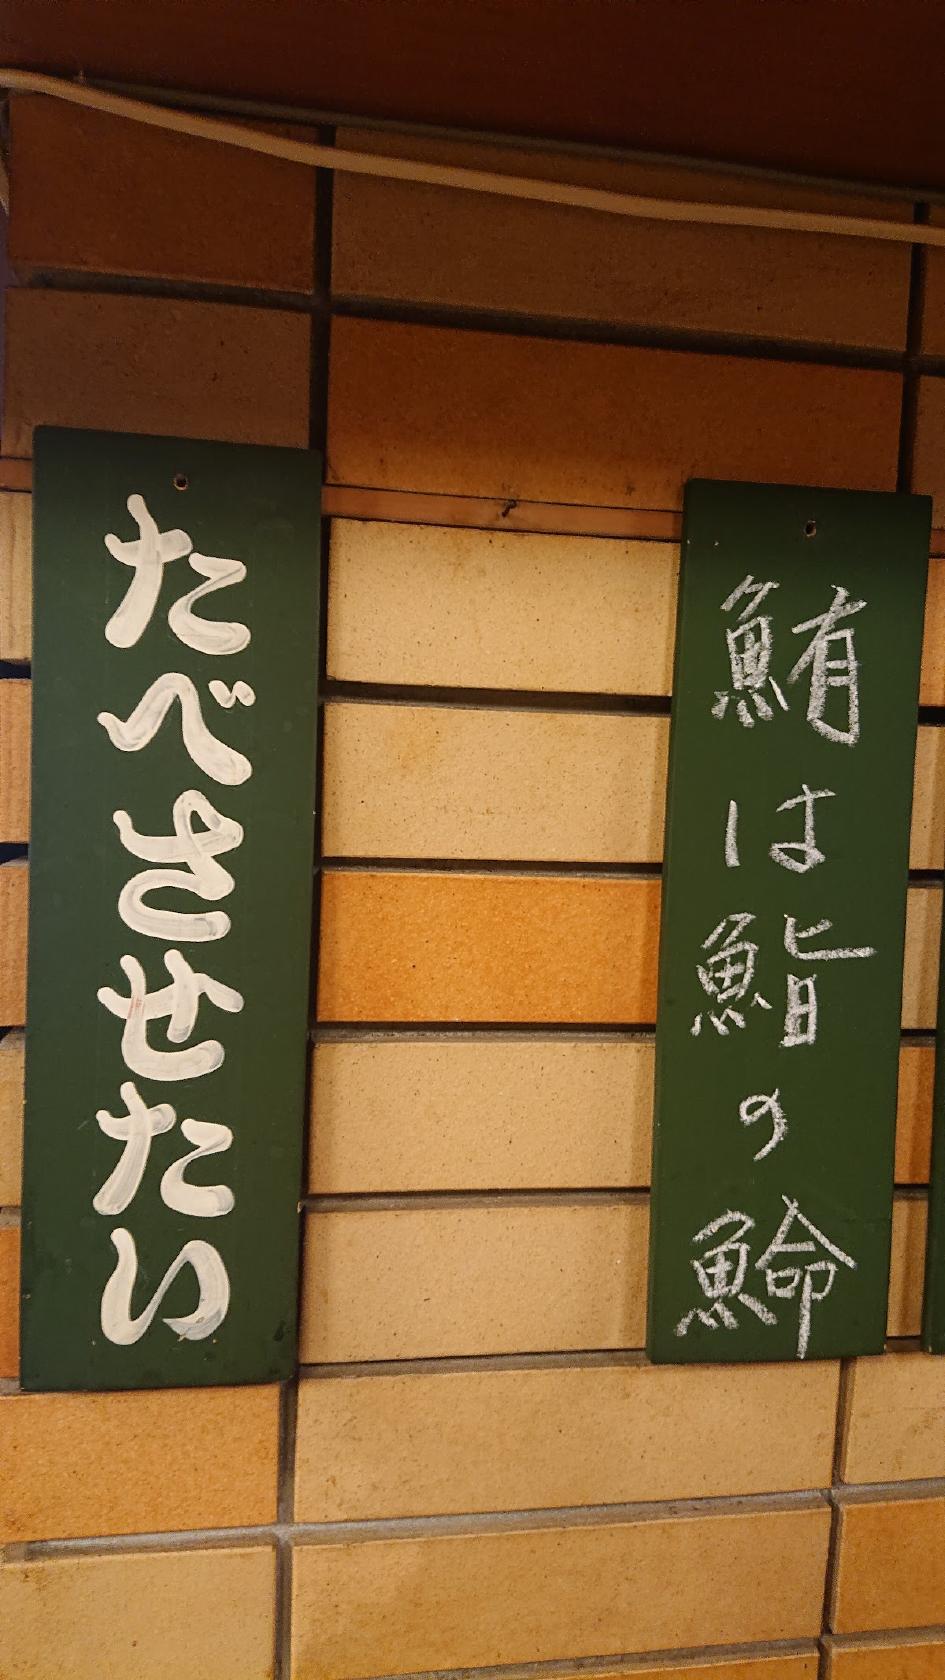 鮪は鮨の
たべさせたい